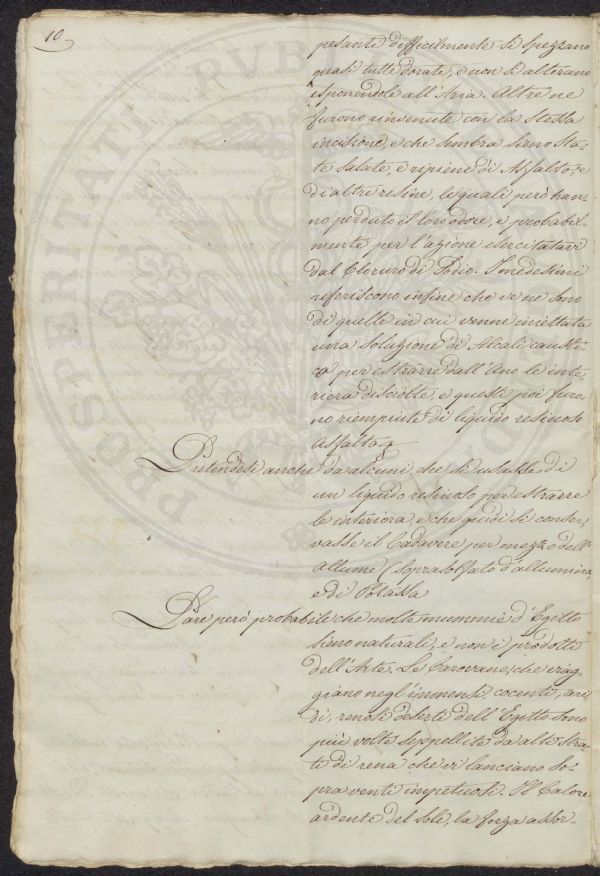 10
pesanti difficilmente si spezzano
quasi tutte dorate, e non si alterano
esponendole all'Aria. Altre ne
furono rinvenute con la stessa
incisione, e che sembra sieno sta-
te salate, e ripiene di Asfalto, e
di altre resine, le quali però han-
no perduto il loro odore, e probabil-
mente per l'azione esercitatavi
dal Cloruro di Sodio. I medesimi
referiscono infine, che ve ne sono
di quelle in cui venne iniettata
una Soluzione di Alcali causti-
co per estrarre dall'Ano le inte-
riora disciolte, e questi poi furo-
no riempiute di liquido resinoso
Asfalto
Pretendesi anche da alcuni, che si usasse di
un liquido resinoso per estrarre
le interiora, e che quidi si conser-
vasse il Cadavere per mezzo dell'
allume (Soprasolfato d'allumina
e di Potassa
Pare però probabile che molte mummie d'Egitto
sieno naturali, e non i prodotti
dell'Arte. Le Carovane, che viag-
giano negl'immensi cocenti, ari-
di, renosi deserti dell'Egitto sono
più volte seppellite da alti stra-
ti di rena che vi lanciano so-
pra venti impetuosi. Il Calore
ardente del sole, la forza assor-
PROSPERITATI PVBLICAE